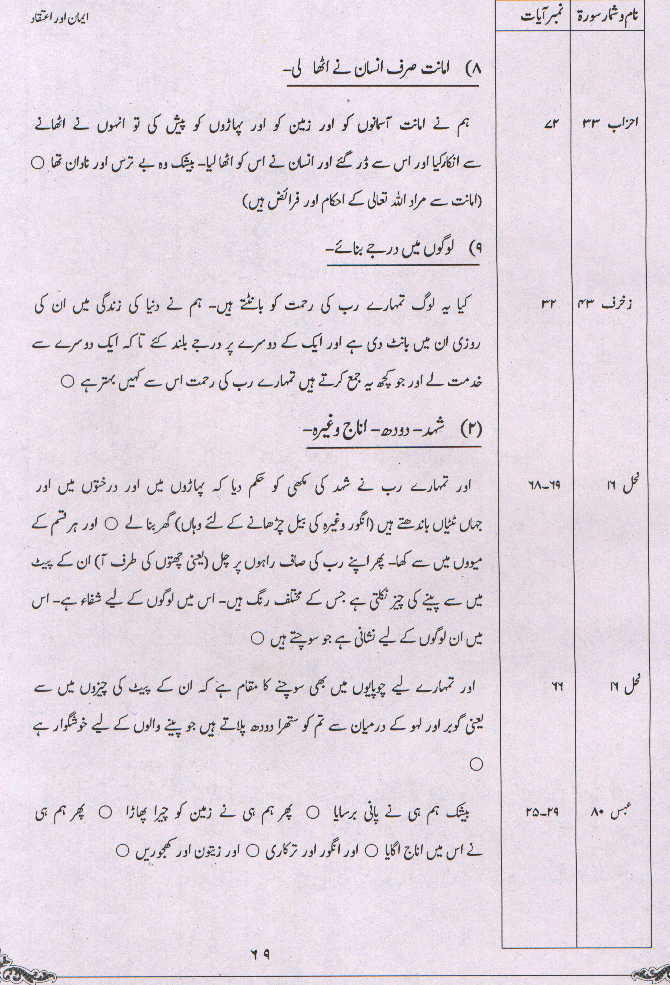 نام و شمار سورۃ نمبر آیات ایمان اور اعتقاد
۸) امانت صرف انسان نے اٹھا لی-
احزاب ۳۳ ۷۲ ہم نے امانت آسمانوں کو اور زمین کو اور پہاڑوں کو پیش کی تو انہوں نے اٹھانے
سے انکار کیا اور اس سے ڈر گئے اور انسان نے اس کو اٹھا لیا- بیشک وہ بے ترس اور نادان تھا ○
(امانت سے مراد اللہ تعالی کے احکام اور فرائض ہیں)
۹) لوگوں میں درجے بنائے-
زخرف ۴۳ ۳۲ کیا یہ لوگ تمہارے رب کی رحمت کو بانٹتے ہیں- ہم نے دنیا کی زندگی میں ان کی
روزی ان میں بانٹ دی ہے اور ایک کے دوسرے پر درجے بلند کئے تاکہ ایک دوسرے سے
خدمت لے اور جو کچھ یہ جمع کرتے ہیں تمہارے رب کی رحمت اس سے کہیں بہتر ہے ○
(۲) شہد- دودھ- اناج وغیرہ-
نحل ۱۶ ۶۸-۶۹ اور تمہارے رب نے شہد کی مکھی کو حکم دیا کہ پہاڑوں میں اور درختوں میں اور
جہاں ٹٹیاں باندھتے ہیں (انگور وغیرہ کی بیل چڑھانے کے لئے وہاں) گھر بنا لے ○ اور ہر قسم کے
میووں میں سے کھا- پھر اپنے رب کی صاف راہوں پر چل (یعنی چھتوں کی طرف آ) ان کے پیٹ
میں سے پینے کی چیز نکلتی ہے جس کے مختلف رنگ ہیں- اس میں لوگوں کے لیے شفاء ہے- اس
میں ان لوگوں کے لیے نشانی ہے جو سوچتے ہیں ○
نحل ۱۶ ۶۶ اور تمہارے لیے چوپایوں میں بھی سوچنے کا مقام ہے کہ ان کے پیٹ کی چیزوں میں سے
یعنی گوبر اور لہو کے درمیان سے تم کو ستھرا دودھ پلاتے ہیں جو پینے والوں کے لیے خوشگوار ہے
○
عبس ۸۰ ۲۵-۲۹ بیشک ہم ہی نے پانی برسایا ○ پھر ہم ہی نے زمین کو چیرا پھاڑا ○ پھر ہم ہی
نے اس میں اناج اگایا ○ اور انگور اور ترکاری ○ اور زیتون اور کھجوریں ○
۶۹